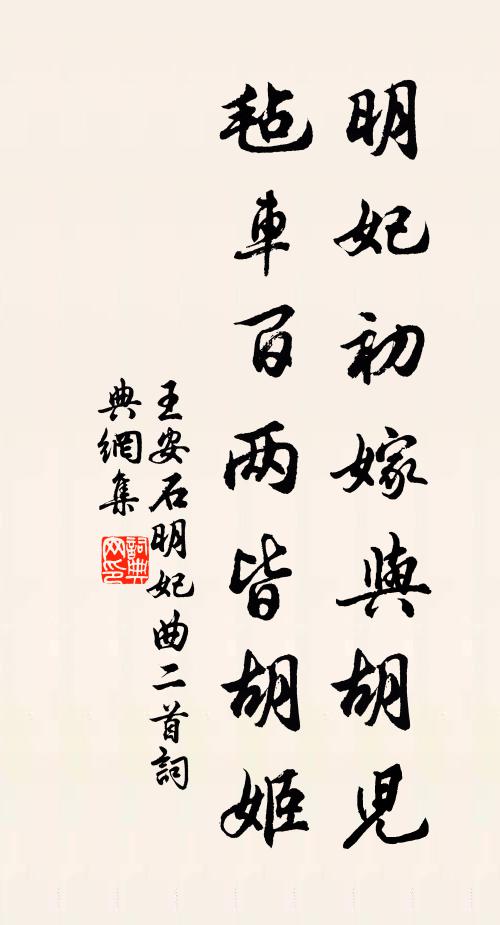 明妃初嫁與胡兒
毡車百两皆胡姬
王安石明妃曲二首詞
典網集
詞典
网印